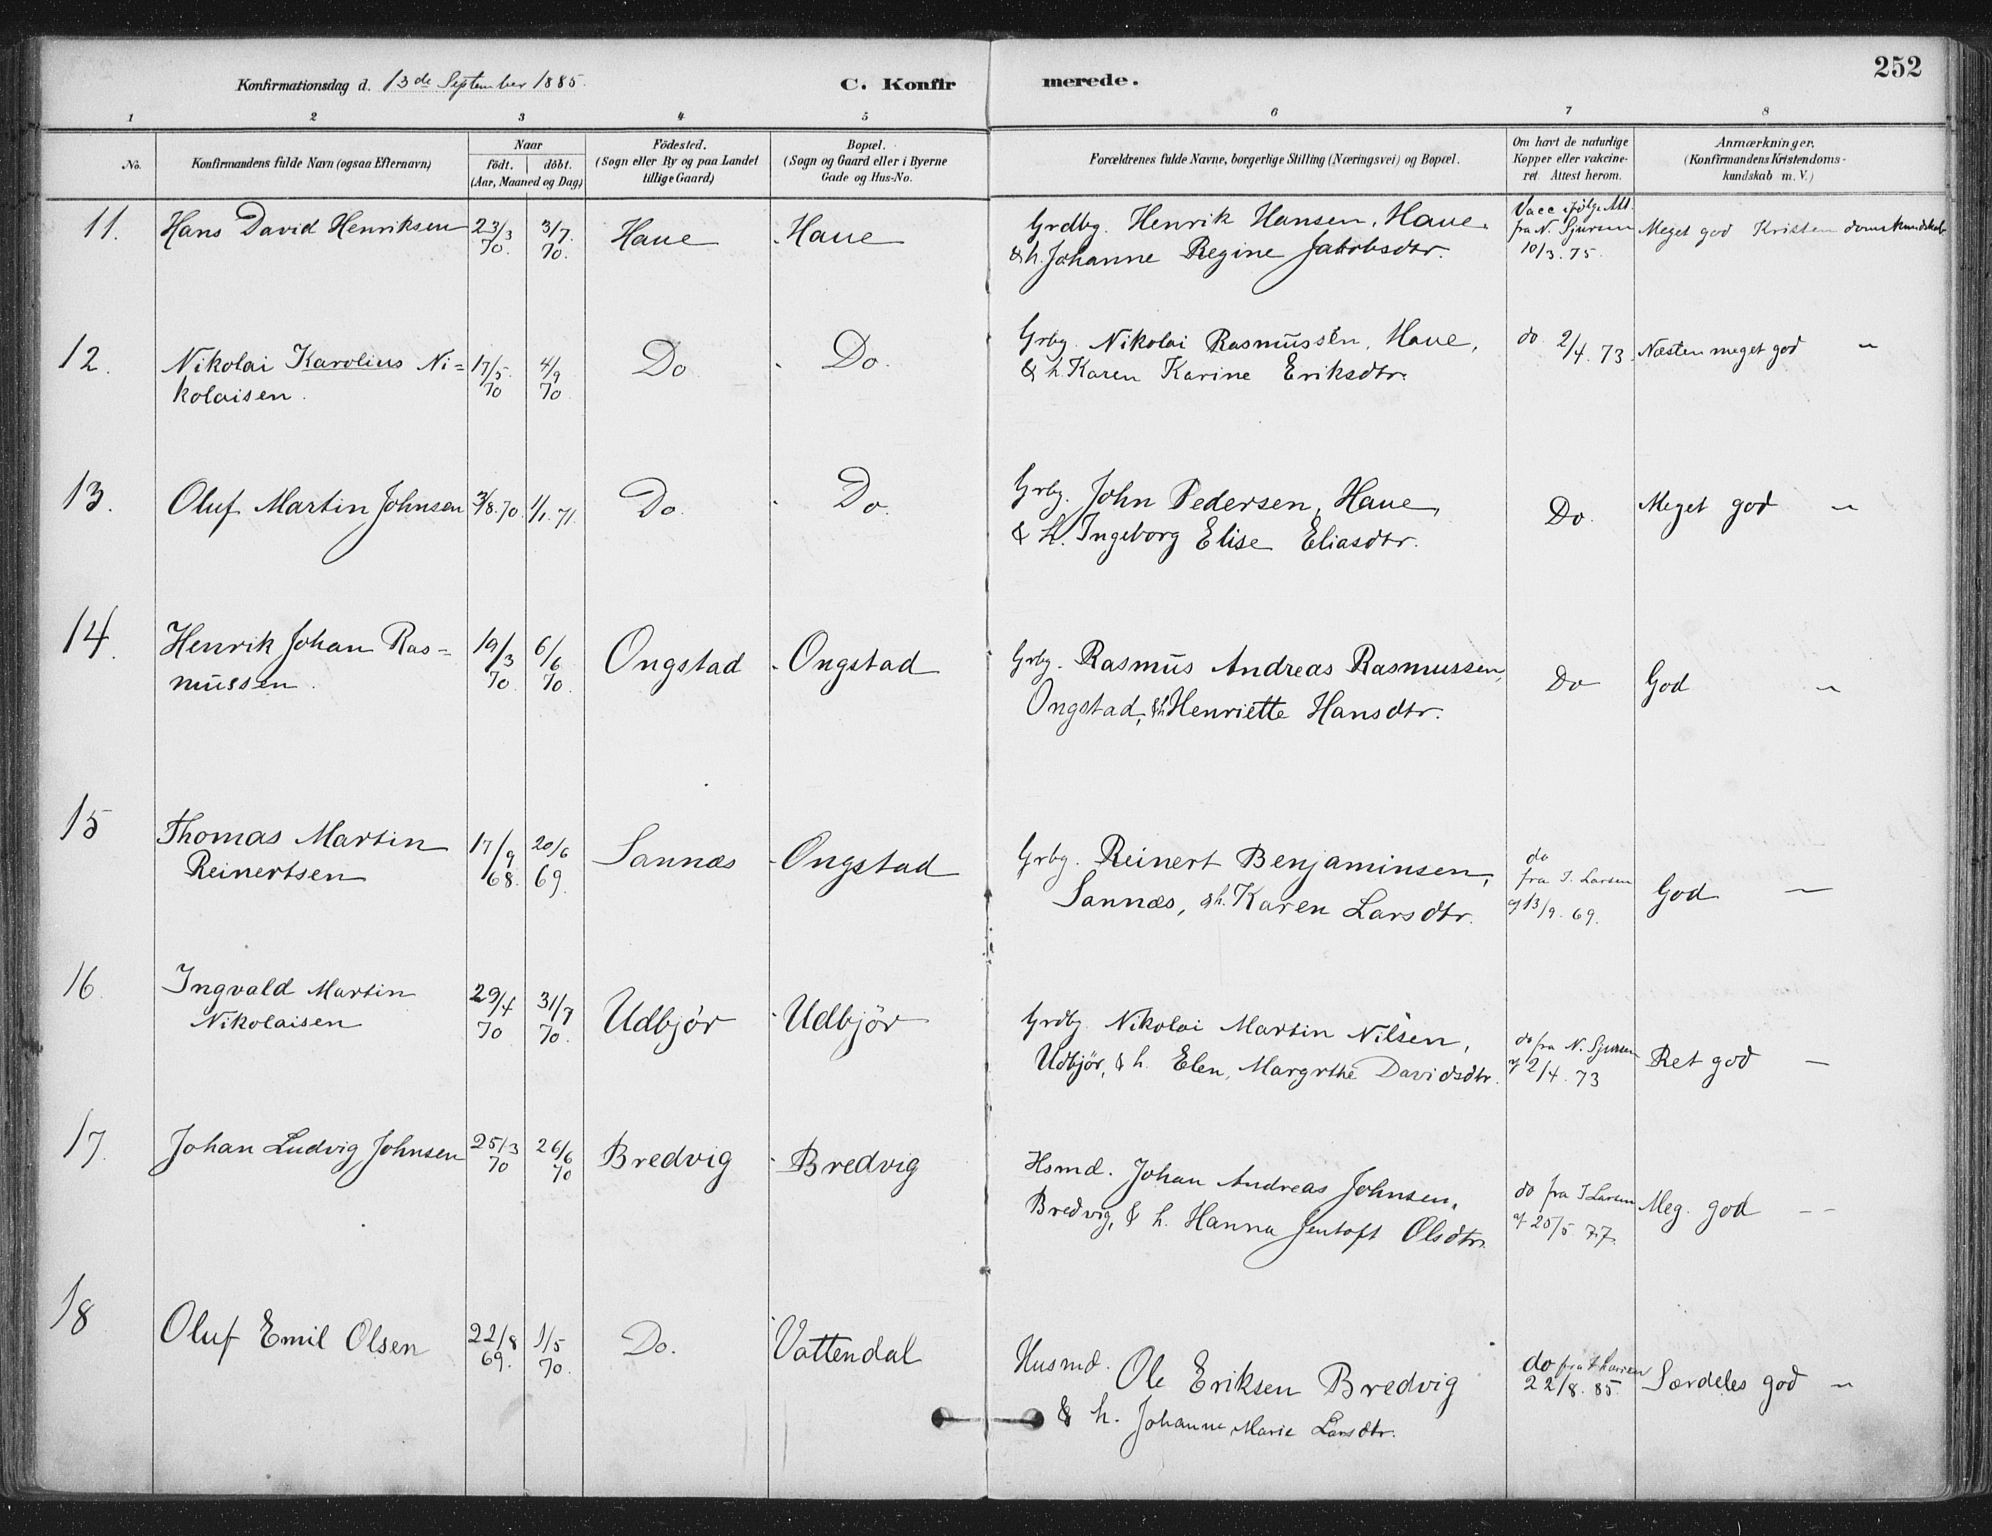 252
Konfirmationsdag d. 13de September 1885.
C. Konfirmerede.
1 2 3 4 5 6 7 8
No.
Konfirmandens fulde Navn (ogsaa Efternavn)
Naar
födt. döbt.
(Aar, Maaned og Dag)
Födested.
(Sogn eller By og paa Landet
tillige Gaard)
Bopæl.
(Sogn og Gaard eller i Byerne
Gade og Hus-No.
Forældrenes fulde Navne, borgerlige Stilling (Næringsvei) og Bopæl.
Om havt de naturlige
Kopper eller vakcine-
ret. Attest herom.
Anmærkninger.
(Konfirmandens Kristendoms-
kundskab m. V.)
11. Hans David Henriksen 23/3 70. 3/7. 70. Haue Haue
Grdbg. Henrik Hansen, Haue.
& h. Johanne Regine Jakobsdtr.
Vacc ifölge Att.
fra N. Sjursen
10/3. 75.
Meget god Kristendomskundskab
12. Nikolai Karolius Ni=
kolaisen.
17/5. 70 4/9 70. Do Do.
Grbg. Nikolai Rasmussen, Haue,
& h. Karen Karine Eriksdtr.
do 2/4. 73.
Næsten meget god "
13. Oluf Martin Johnsen 3/8. 70. 1/1. 71. Do. Do.
Grbg. John Pedersen, Haue,
& h. Ingeborg Elise Eliasdtr.
Do.
Meget god "
14. Henrik Johan Ras=
mussen.
19/3 70. 6/6 70. Ongstad Ongstad
Grbg. Rasmus Andreas Rasmussen,
Ongstad, & h Henriette Hansdtr.
Do
God "
15 Thomas Martin
Reinertsen
17/9 68. 20/6 69. Sannæs Ongstad
Grbg. Reinert Benjaminsen,
Sannæs, & h. Karen Larsdtr.
do
fra J. Larsen
af 13/9. 69.
God "
16 Ingvald Martin
Nikolaisen
29/4 70 31/7 70. Udbjör Udbjör
Grdbg. Nikolai Martin Nilsen,
Udbjör, & h. Elen, Margrthe Davidsdtr.
do fra N. Sjursen
af 2/4. 73
Ret god "
17. Johan Ludvig Johnsen 25/3 70 26/6 70 Bredvig Bredvig
Hsmd. Johan Andreas Johnsen,
Bredvig, & h. Hanna Jentoft Olsdtr.
do fra J Larsen
af 25/5 77.
Meg. god "
18 Oluf Emil Olsen 22/8 69. 1/5 70. Do. Vattendal
Husmd. Ole Eriksen Bredvig
& h. Johanne Marie Larsdtr.
do fra J Larsen
22/8. 85.
Særdeles god "